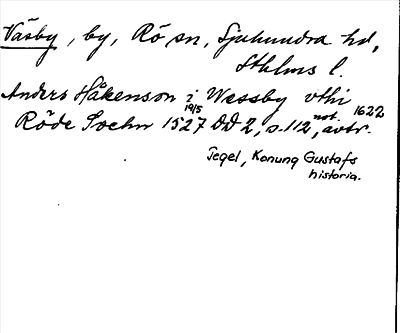 Väsby, by, Rö sn, Sjuhundra hd,
Sthlms l.
Anders Håkenson i Wessby vthi
Röde Sochn 19/5 1527 DD 2, s. 112, not. avtr. 1622
Tegel, Konung Gustafs
historia.